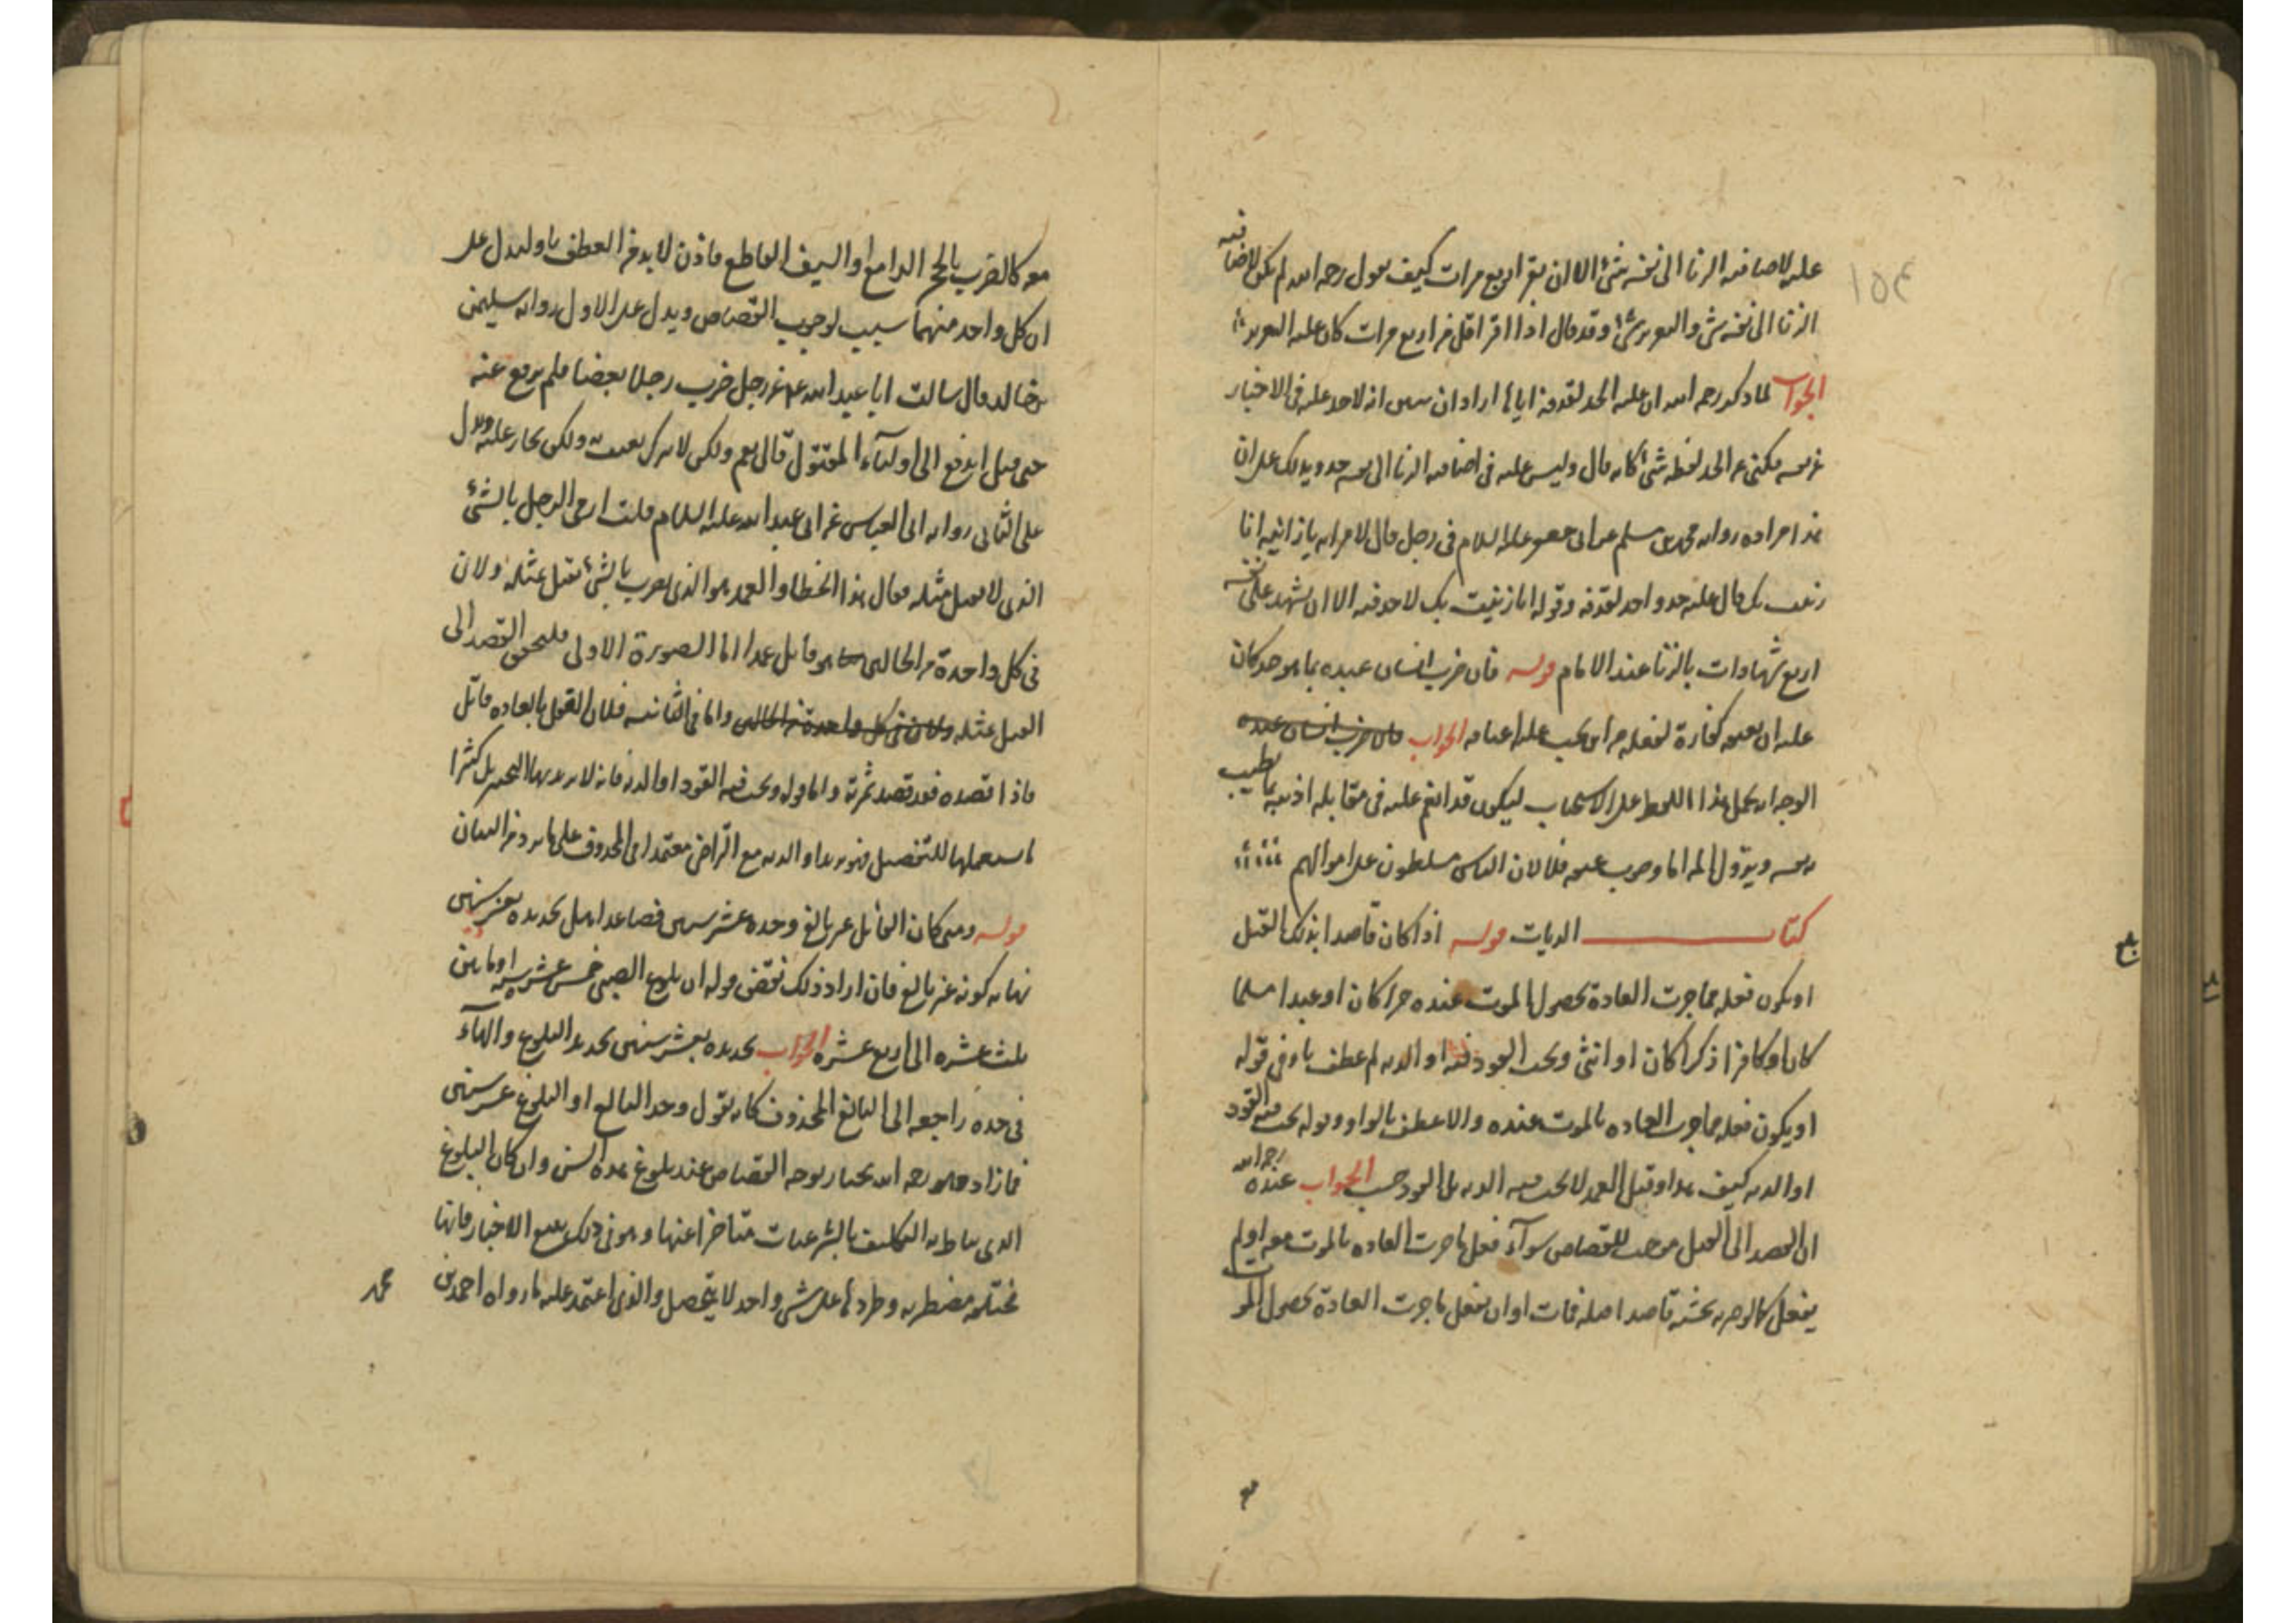 عليه لاضافته الزنا الى نفسه شئ الا ان يقر اربع مرات كيف يقول رحمه الله لم يكن لاضافته
الزنا الى نفسه شئ والتعزير شئ وقد قال اذا اقر اقل من اربع مرات كان عليه التعزير
الجواب لما ذكر رحمه الله ان عليه الحد لقذفه اياها اراد ان يبين انه لا حد عليه في الاخبار
عن نفسه فكنى عن الحد بلفظه شئ كانه قال وليس عليه في اضافه الزنا الى نفسه حد ويدلك على ان
هذا مراده روايه محمد بن مسلم عن ابي جعفر عليه السلام في رجل قال لامراته يا زانيه انا
زنيت بك قال عليه حد واحد لقذفه وقوله انا زنيت بك لا حد فيه الا ان يشهد على نفسه
اربع شهادات بالزنا عند الامام قوله فان ضرب انسان عبده بما هو حد كان
عليه ان يعتقه كفارة لفعله من اين يجب عليه اعتاقه الجواب فان ضرب انسان عبده
الوجه ان يحمل هذا اللفظ على الاستحباب ليكون قد انعم عليه في مقابله اذيته بما يطيب
نفسه ويزول المه اما وجوب عتقه فلا لان الناس مسلطون على اموالهم
كتاب الديات قوله اذا كان قاصدا بذلك القتل
او يكون فعله مما جرت العادة بحصول الموت عنده حرا كان او عبدا مسلما
كان او كافرا ذكرا كان او انثى ويجب القود فيه او الديه لم عطف باو في قوله
او يكون فعله مما جرت العاده بالموت عنده والا عطف بالواو وقوله يجب فيه القود
او الديه كيف هذا وقتل العمد لا يجب فيه الديه بل القود حسب الجواب عنده رحمه الله
ان القصد الى القتل موجب للقصاص سوآء فعل ما جرت العاده بالموت معه او لم
يفعل كالو ضربه بخشبه قاصدا قتله فمات او ان يفعل ما جرت العادة بحصول الموت
معه كالضرب بالحجر الدامغ او السيف القاطع فاذن لا بد من العطف باو ليدل على
ان كل واحد منهما سبب لوجوب القصاص ويدل على الاول روايه سليمن
بن خالد قال سالت ابا عبد الله ع عن رجل ضرب رجلا بعصا فلم يرفع عنه
حتى قتل ايدفع الى اوليآء المقتول قال نعم ولكن لا يترك يعبث به ولكن يجاز عليه ويدل
على الثاني روايه ابي العباس عن ابي عبد الله عليه السلام قلت ارمي الرجل بالشئ
الذي لا يقتل مثله فقال هذا الخطا والعمد هو الذي يضرب بالشئ يقتل بمثله ولان
في كل واحدة من الحالين هو قاتل عمدا اما الصورة الاولى فلتحقق القصد الى
القتل بمثله ولان في كل واحدة من الحالين واما في الثانيه فلان الفعل بالعاده قاتل
فاذا قصده فقد قصد ثمرته واما قوله ويجب فيه القود او الديه فانه لا يريد بها التخيير بل كثيرا
ما يستعملها للتفصيل فهو يريد او الديه مع التراضي معتمدا في المحذوف على ما يرد من البيان
قوله ومتى كان القاتل غير بالغ وحده عشر سنين فصاعدا هل تحديده بعشر سنين
نهايه كونه غير بالغ فان اراد ذلك نقض قوله ان بلوغ الصبي خمس عشر سنه او ما بين
ثلث عشره الى اربع عشره الجواب تحديده بعشر سنين تحديد البلوغ والهآء
في حده راجعه الى البالغ المحذوف كانه يقول وحد البالغ او البلوغ عشر سنين
فما زاد فهو رحمه الله يختار توجه القصاص عند بلوغ هذه السن وان كان البلوغ
الذي يناط به التكليف بالشرعيات متاخرا عنها وهو في ذلك يتبع الاخبار فانها
مختلفه مضطربه وطردها على شئ واحد لا يتحصل والذي اعتمد عليه ما رواه احمد بن
محمد